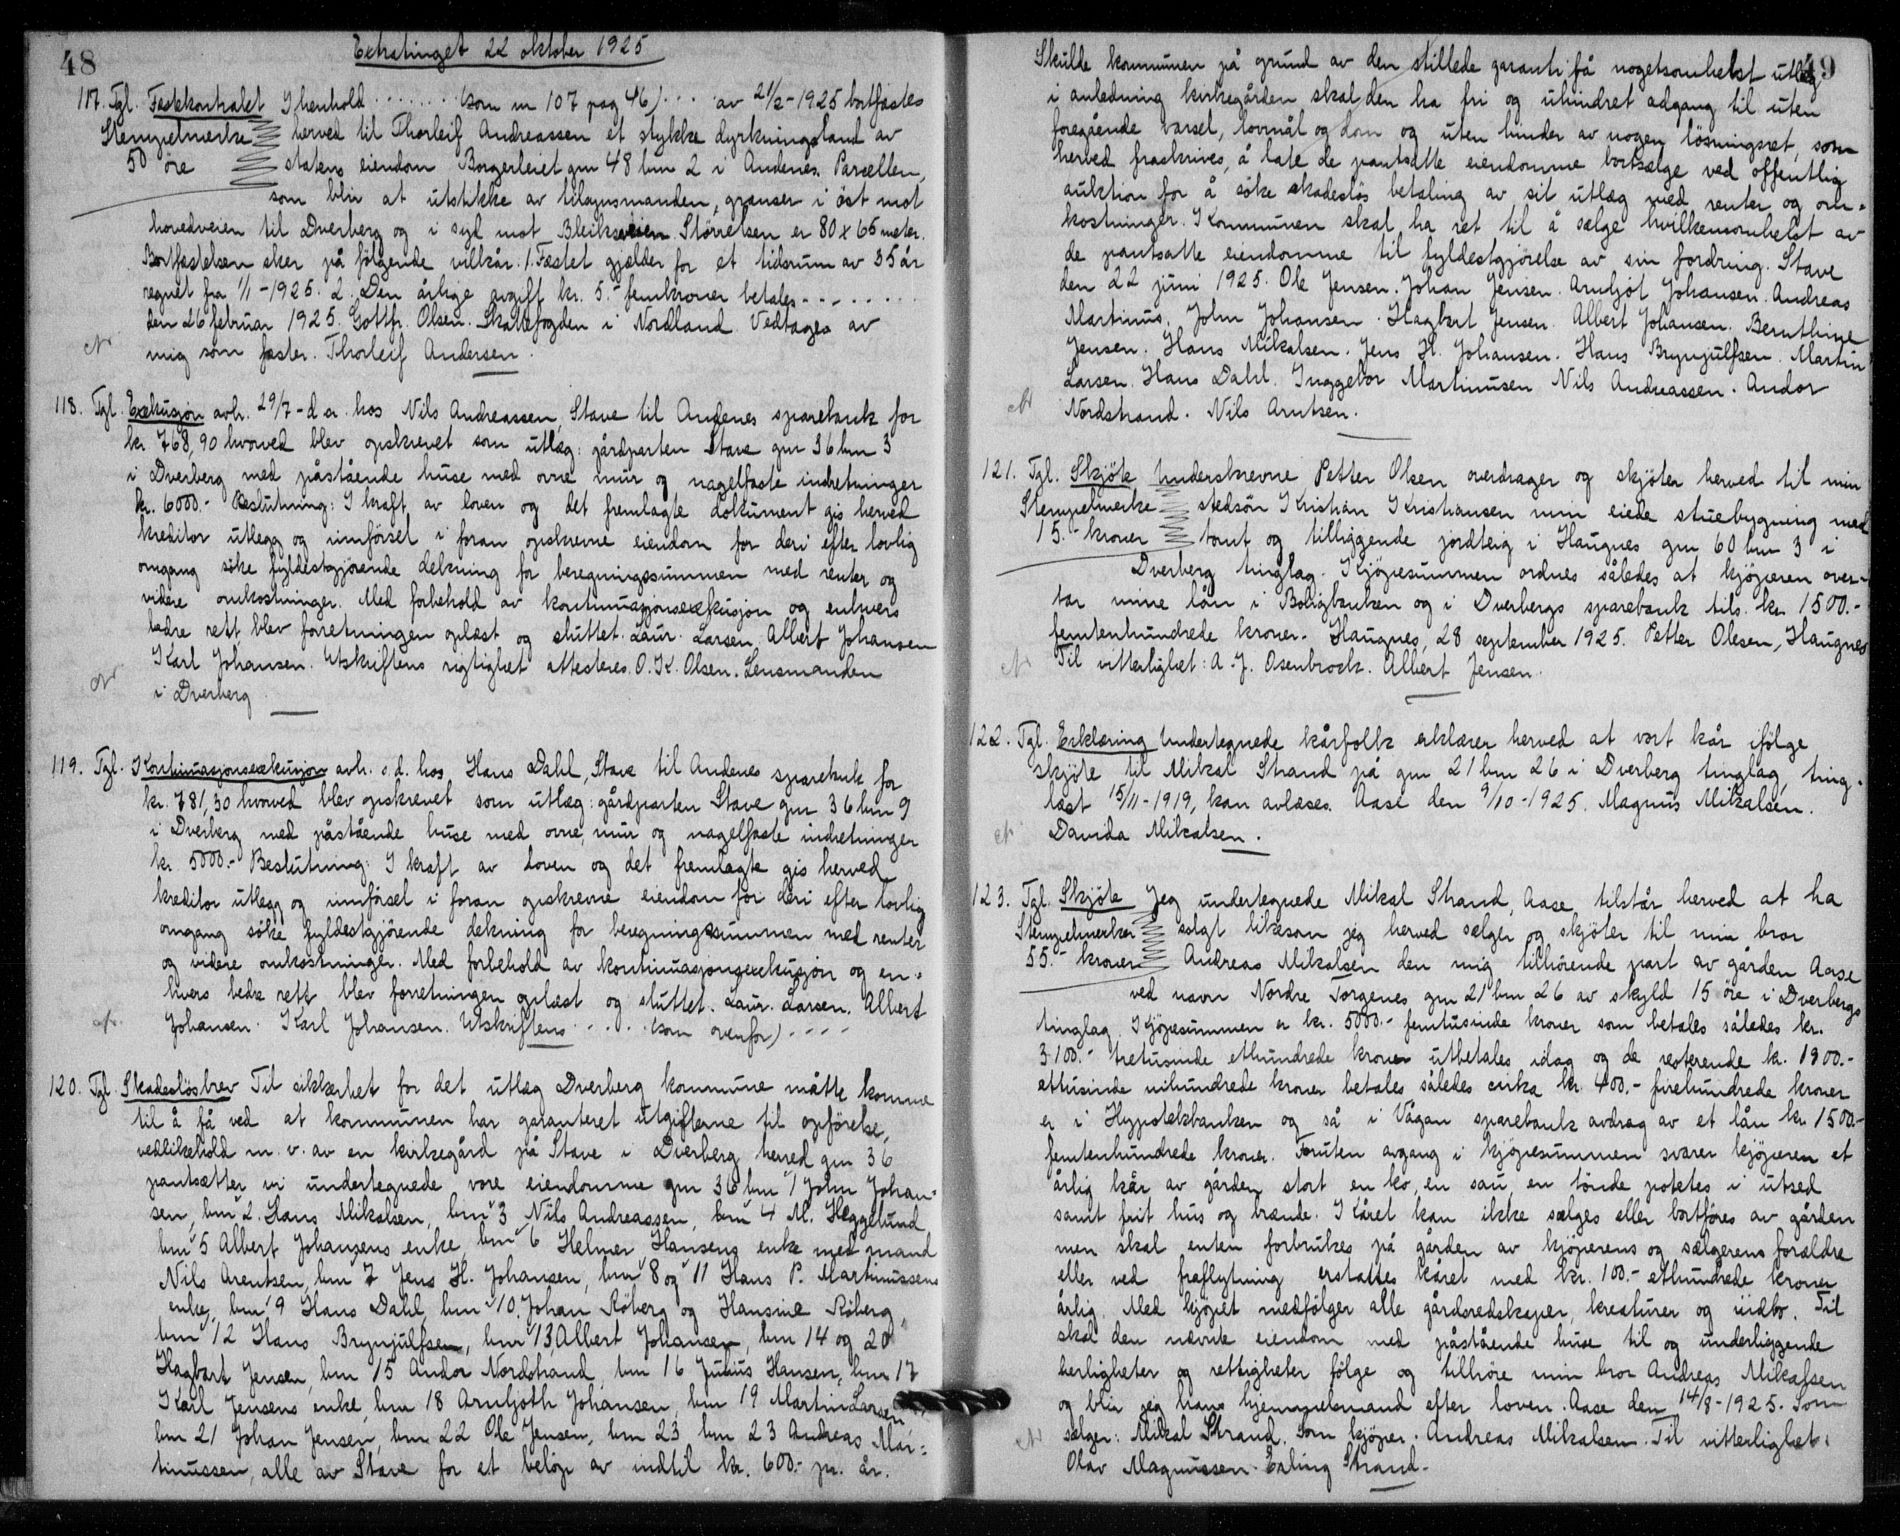 48
Extratinget 22 oktober 1925
117. Tgl. Festekontrakt I henhold ....... (som nr 107 pag 46) ... av 21/2-1925 bortfæstes
Stempelmerke herved til Thorleif Andreassen et stykke dyrkningsland av
50 öre statens eiendom Borgerleiet gnr 48 bnr 2 i Andenes. Parcellen,
som blir at utstikke av tilsynsmanden, grænser i öst mot
hovedveien til Dverberg og i syd mot Bleiksveien. Störrelsen er 80 x 65 meter.
Bortfæstelsen sker på fölgende vilkår: 1. Fæstet gjælder for et tidsrum av 35 år
regnet fra 1/1-1925. 2. Den årlige avgift kr. 5.- femkroner betales - - - - - - -
den 26 februar 1925. Gottfr. Olsen. Skattefogden i Nordland. Vedtages av
mig som fæster. Thorleif Andersen.
118. Tgl. Exekusjon avh. 29/7 - d. a. hos Nils Andreassen, Stave til Andenes sparebank for
kr. 768,90 hvorved blev opskrevet som utlæg: gårdparten Stave gnr 36 bnr 3
i Dverberg med påstående huse med ovne, mur og nagelfaste indretninger
kr. 6000.- Beslutning: I kraft av loven og det fremlagte dokument gis herved
kreditor utlegg og innförsel i foran opskrevne eiendom for deri efter lovlig
omgang söke fyldestgjörende dekning for beregningssummen med renter og
videre omkostninger. Med forbehold av kontinuasjonsexekusjon og enhvers
bedre rett blev forretningen oplæst og sluttet. Laur. Larsen. Albert Johansen
Karl Johansen. Utskriftens rigtighet attesteres. O. K. Olsen. Lensmanden
i Dverberg
119. Tgl. Kontinuasjonsexekusjon avh. s.d. hos Hans Dahl, Stave til Andenes sparebank for
kr. 781,30 hvorved blev opskrevet som utlæg: gårdparten Stave gnr 36 bnr 9
i Dverberg med påstående huse med ovne, mur og nagelfaste indretninger
kr. 5000.- Beslutning: I kraft av loven og det fremlagte gis herved
kreditor utlegg og innförsel i foran opskrevne eiendom for deri efter lovlig
omgang söke fyldestgjörende dekning for beregningssummen med renter
og videre omkostninger. Med forbehold av kontinuasjonsexekusjon og en-
hvers bedre rett blev forretningen oplæst og sluttet. Laur. Larsen. Albert
Johansen. Karl Johansen. Utskriftens ...... (som ovenfor) ....
120. Tgl. Skadeslösbrev Til sikkerhet for det utlæg Dverberg kommune måtte komme
til å få ved at kommunen har garanteret utgifterne til opförelse,
vedlikehold m. v. av en kirkegård på Stave i Dverberg herred gnr 36
pantsætter vi undertegnede vore eiendomme gnr 36 bnr 1 John Johan-
sen, bnr 2. Hans Mikalsen, bnr 3 Nils Andreassen, bnr 4 M. Heggelund
bnr 5 Albert Johansens enke, bnr 6 Helmer Hansens enke med mand
Nils Arentsen, bnr 7 Jens H. Johansen, bnr 8 og 11 Hans P. Martinussens
enke, bnr 9 Hans Dahl, bnr 10. Johan Röberg og Hansine Röberg
bnr 12 Hans Brynjulfsen, bnr 13, Albert Johansen, bnr 14 og 20
Hagbart Jensen, bnr 15 Andor Nordstrand, bnr 16 Julius Hansen, bnr 17
Karl Jensens enke, bnr 18 Arnljoth Johansen, bnr 19 Martin Larsen,
bnr 21 Johan Jensen, bnr 22 Ole Jensen, bnr 23 bnr 23 Andreas Mar-
tinussen, alle av Stave for et belöp av indtil kr. 600.- pr. år.
49
Skulde kommunen på grund av den stillede garanti få nogetsomhelst utlæg
i anledning kirkegården skal den ha fri og uhindret adgang til uten
foregående varsel, lovmål og dom og uten hinder av nogen lösningsret, som
herved fraskrives, å late de pantsatte eiendomme bortsælge ved offentlig
auktion for å söke skadeslös betaling av sit utlæg med renter og om-
kostninger. Kommunen skal ha ret til å sælge hvilkensomhelst av
de pantsatte eiendomme til fyldestgjörelse av sin fordring. Stave
den 22 juni 1925. Ole Jensen. Johan Jensen. Arnljot Johansen. Andreas
Martinus. John Johansen. Hagbart Jensen. Albert Johansen. Bernthine
Jensen. Hans Mikalsen. Jens H. Johansen. Hans Brynjulfsen. Martin
Larsen. Hans Dahl. Inggebor Martinusen Nils Andreassen. Andor
Nordstrand. Nils Arntsen.
121. Tgl. Skjöte Underskrevne Petter Olsen overdrager og skjöter herved til min
Stempelmerke stedsön Kristian Kristiansen min eiede stuebygning med
15.- kroner tomt og tilliggende jordteig i Haugnes gnr 60 bnr 3 i
Dverberg tinglag. Kjöpesummen ordnes således at kjöperen over-
tar mine lån i Boligbanken og i Dverbergs sparebank tils. kr. 1500.-
femtenhundrede kroner. Haugnes, 28 september 1925. Petter Olesen, Haugnes
Til vitterlighet: A. J. Osenbroch. Albert Jensen.
122. Tgl. Erklæring Undertegnede kårfolk erklærer herved at vort kår ifölge
skjöte til Mikal Strand på gnr 21 bnr 26 i Dverberg tinglag, ting-
læst 15/11-1919, kan avlæses. Aase den 9/10-1925. Magnus Mikalsen.
Davida Mikalsen.
123. Tgl. Skjöte Jeg undertegnede Mikal Strand, Aase tilstår herved at ha
Stempelmerker solgt likesom jeg herved sælger og skjöter til min bror
55.- kroner Andreas Mikalsen den mig tilhörende part av gården Aase
ved navn Nordre Torgenes gnr 21 bnr 26 av skyld 15 öre i Dverbergs
tinglag. Kjöpesummen er kr. 5000.- femtusinde kroner som betales således kr.
3100.- tretusinde ethundrede kroner utbetales idag og de resterende kr. 1900.-
ettusinde nihundrede kroner betales således cirka kr. 400.- firehundrede kroner
er i Hypotekbanken og så i Vågan sparebank avdrag av et lån kr 1500.-
femtenhundrede kroner. Foruten avgang i kjöpesummen svarer kjöperen et
årlig kår av gården stort en ko, en sau, en tönde potetes i utsed
samt frit hus og brænde. Kåret kan ikke sælges eller bortföres av gården
men skal enten forbrukes på gården av kjöperens og sælgerens forældre
eller ved fraflytning erstattes kåret med kr. 100.- ethundrede kroner
årlig. Med kjöpet medfölger alle gårdsredskaper, kreaturer og indbo. Til
skal den nævnte eiendom med påstående huse til og underliggende
herligheter og rettigheter fölge og tilhöre min bror Andreas Mikalsen
og blir jeg hans hjemmelsmand efter loven. Aase den 14/8-1925. Som
sælger: Mikal Strand. Som kjöper. Andreas Mikalsen. Til vitterlighet:
Olav Magnussen. Erling Strand.